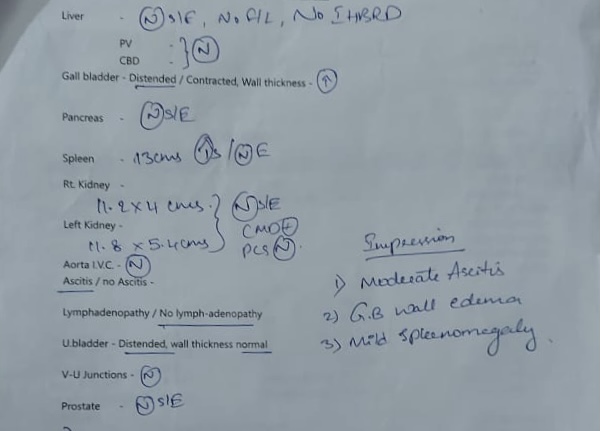 Liver - Ⓝ S/E, No F/L, No IHBRD
PV - } Ⓝ
CBD -
Gall bladder - Distended / Contracted, Wall thickness - ↑
Pancreas - Ⓝ S/E
Spleen - 13cms ↑S / Ⓝ E
Rt. Kidney -
11.2 x 4 cms. } Ⓝ S/E
Left Kidney - CMD +
11.8 x 5.4cms PCS Ⓝ.
Aorta I.V.C. - Ⓝ
Ascitis / no Ascitis -
Lymphadenopathy / No lymph-adenopathy
U.bladder - Distended, wall thickness normal
V-U Junctions - Ⓝ
Prostate - Ⓝ S/E
Impression
1) Moderate Ascitis
2) G.B wall edema
3) Mild Spleenomegaly.